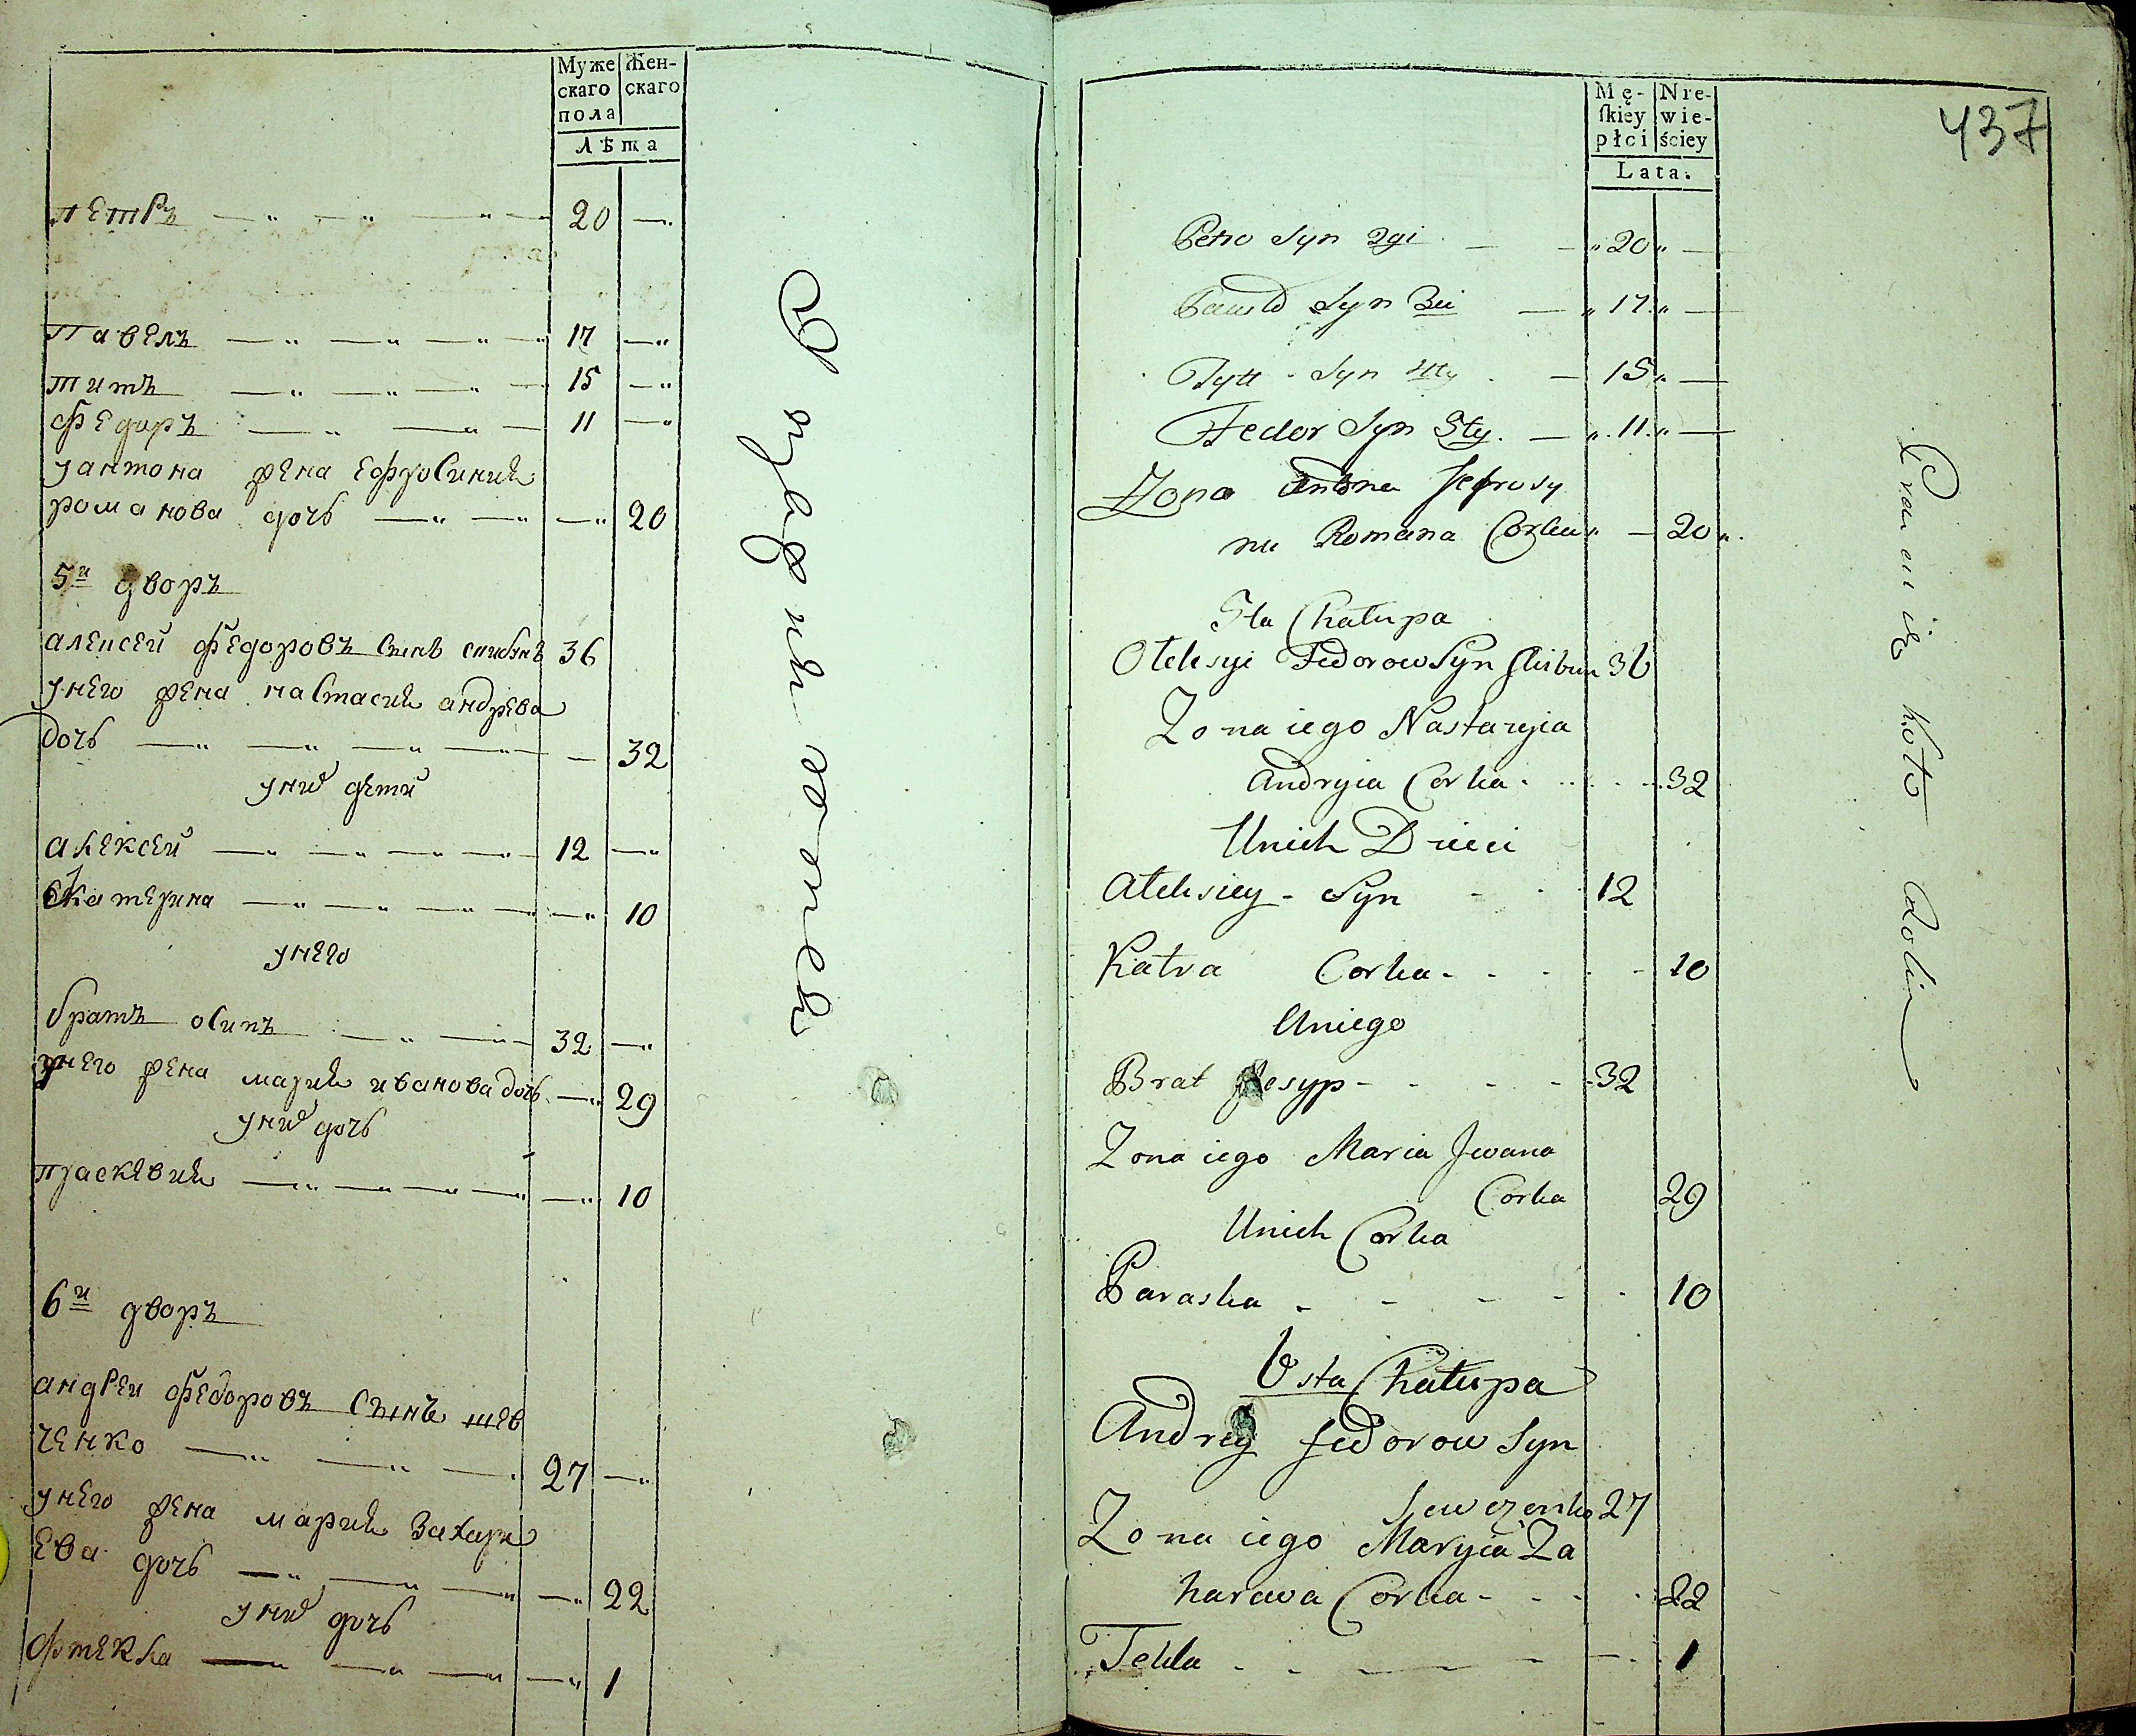 Муже Жен-
скаго скаго
пола
Лѣта
петръ 20
павелъ 17
титъ 15
федоръ 11
у антона жена ефросиния
романова дочь 20
5й дворъ
алексей федоровъ сынъ 36
унего жена настасия андрева
дочь 32
уних дети
алексей 12
екатерина 10
унего
братъ осипъ 32
унего жена мария иванова дочь 29
уних дочь
праскевия 10
6й дворъ
андреи федоровъ сынъ шев
ченко 27
унего жена мария захари
ева дочь 22
уних дочь
фтекла 1
Mę- Nie-
ſkiey wie-
płci ściey
Lata.
437
Petro Syn 2gi 20
Pawło Syn 3ci 17
Tytt Syn 4ty 15
Fedor Syn 5ty 11
Zona Antona Jefrosy
na Romana Corka 20
5ta Chałupa
Ołeksyi Fedorow Syn 36
Zona iego Nastazyia
Andryia Corka 32
Unich Dzieci
Ałeksiey Syn 12
Katra Corka 10
Uniego
Brat Josyp 32
Zona iego Maria Jwana
Corka 29
Unich Corka
Paraska 10
6sta Chałupa
Andrey Fedorow Syn
Szewczenko 27
Zona iego Maryia Za
harowa Corka 22
Tekla 1